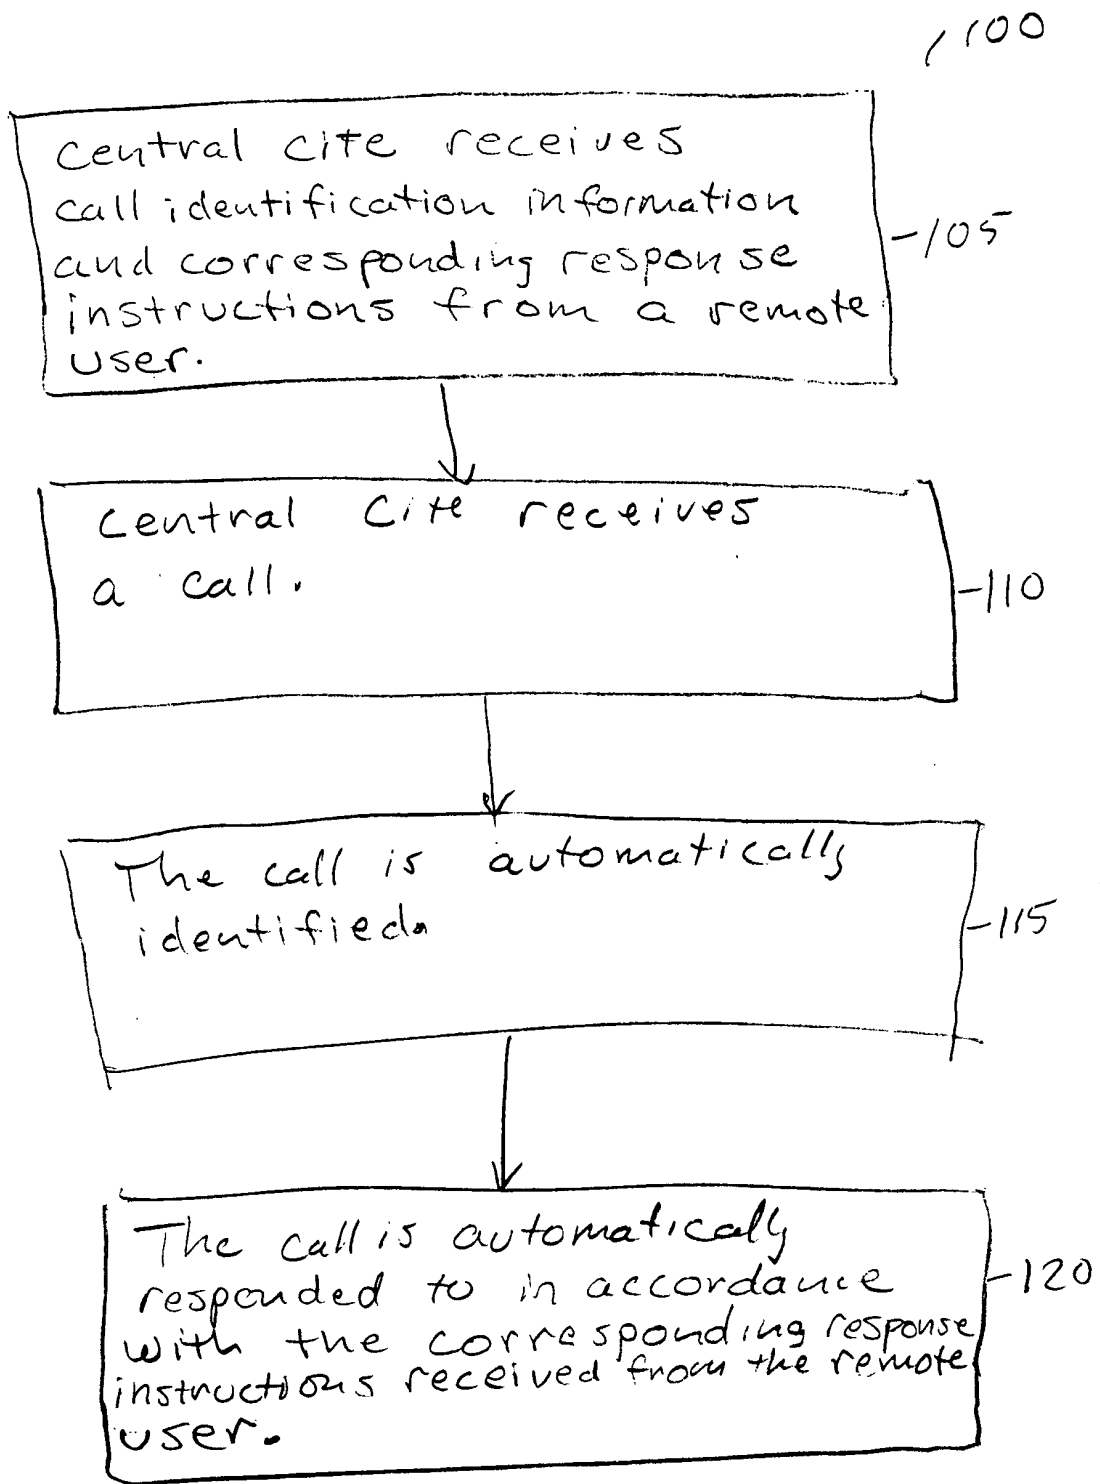 100
Central cite receives
call identification information
and corresponding response
instructions from a remote
user.
105
Central cite receives
a call.
110
The call is automatically
identified.
115
The call is automatically
responded to in accordance
with the corresponding response
instructions received from the remote
user.
120